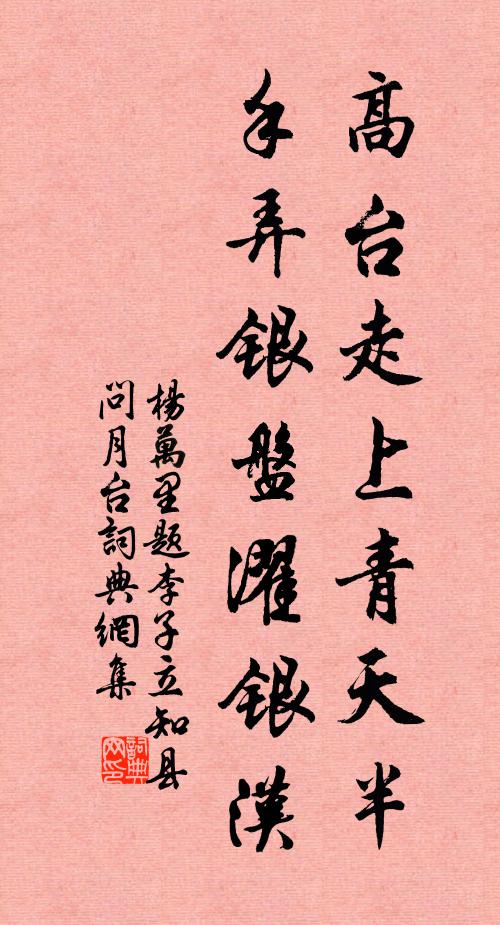 高台走上青天半
手弄银盤濯银漢
楊萬里题李子立知县
问月台詞典網集
詞典网印